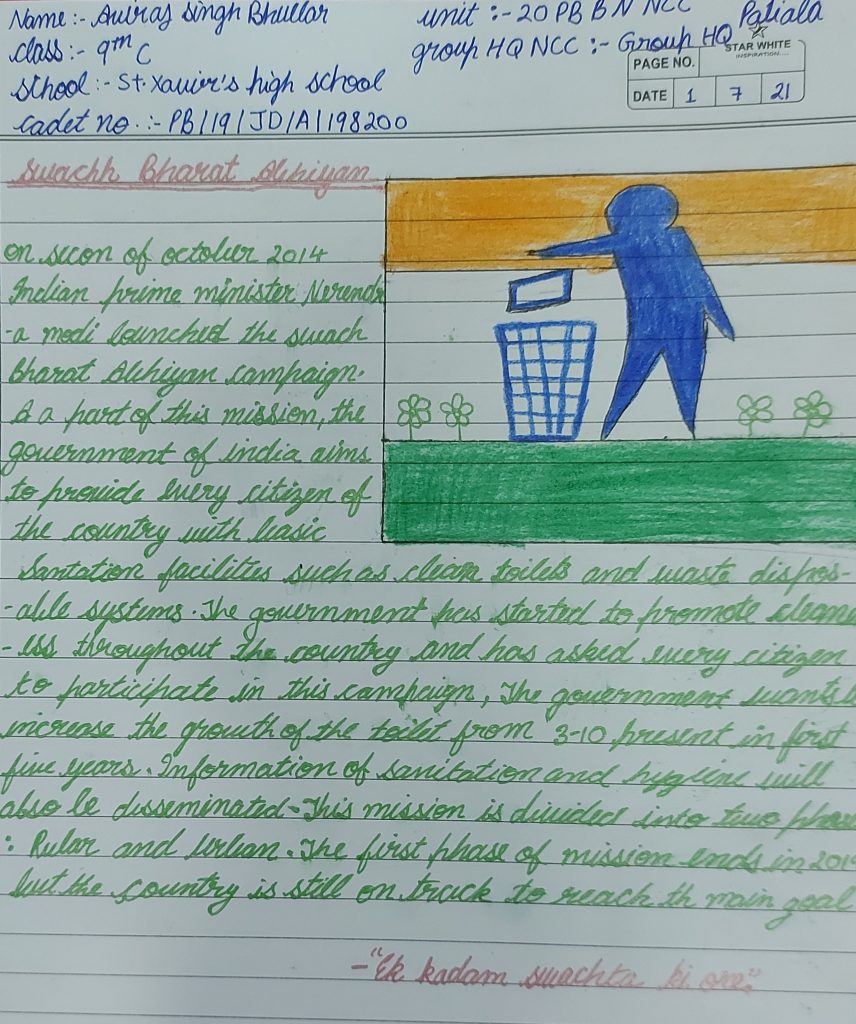 Name:- Aviraj Singh Bhullar
class:- 9th C
school:- St. Xavier's high school
cadet no.:- PB/19/JD/A/198200
unit:- 20 PB BN NCC Patiala
group HQ NCC:- Group HQ
STAR WHITE
INSPIRATION......
PAGE NO.
DATE 1 7 21
Swachh Bharat Abhiyan
on secon of october 2014
Indian prime minister Nerendr
-a modi launched the swach
Bharat Abhiyan campaign.
A a part of this mission, the
government of india aims
to provide every citizen of
the country with basic
Santation facilities such as clean toilets and waste dispos-
-able systems. The government has started to promote cleane
-ess throughout the country and has asked every citizen
to participate in this campaign, The government wants
increase the growth of the toilet from 3-10 present in first
five years. Information of sanitation and hygiene will
also be disseminated- This mission is divided into two phase
: Rular and Urban. The first phase of mission ends in 2019
but the country is still on track to reach th main goal
-"Ek kadam swachta ki ore."